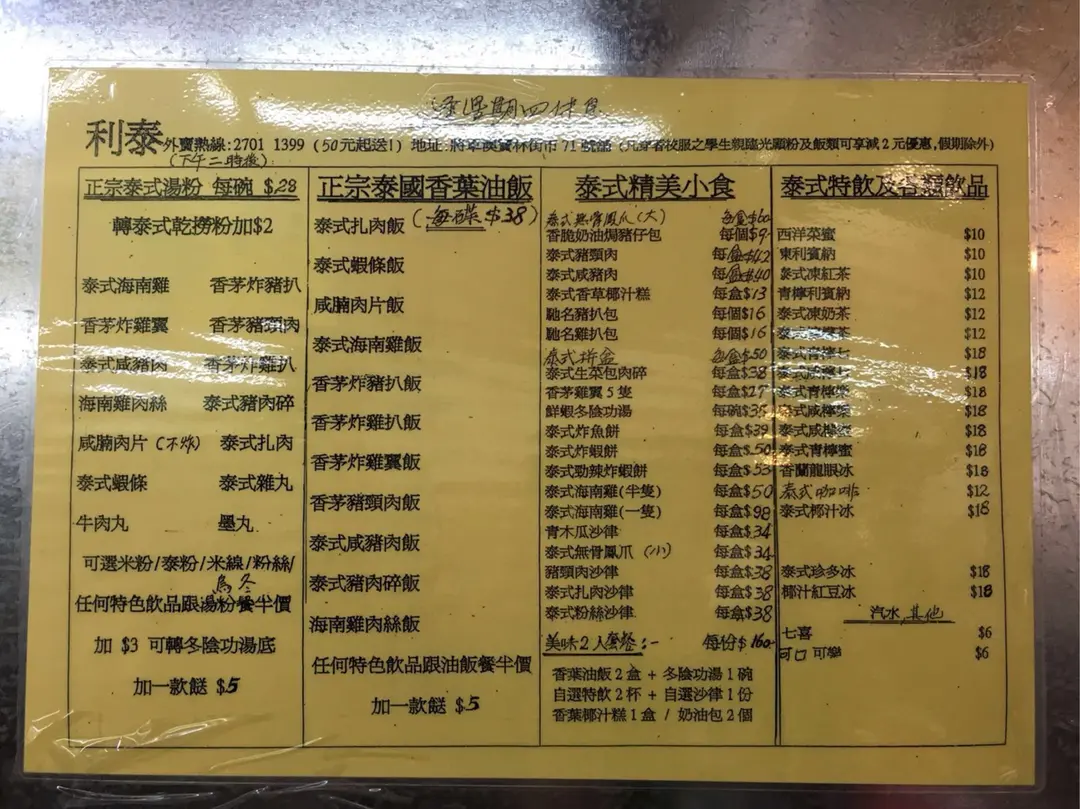 逢星期四休息
利泰 外賣熱線:2701 1399 (50元起送!) 地址:將軍澳寶林街市71號舖 (只穿着校服之學生親臨光顧粉及飯類可享減2元優惠,假期除外)
(下午二時後)
正宗泰式湯粉 每碗 $28
轉泰式乾撈粉加$2
泰式海南雞 香茅炸豬扒
香茅炸雞翼 香茅豬頸肉
泰式咸豬肉 香茅炸雞扒
海南雞肉絲 泰式豬肉碎
咸腩肉片(不炸) 泰式扎肉
泰式蝦條 泰式雜丸
牛肉丸 墨丸
可選米粉/泰粉/米線/粉絲/
烏冬
任何特色飲品跟湯粉餐半價
加 $3 可轉冬陰功湯底
加一款餸 $5
正宗泰國香葉油飯
(每碟$38)
泰式扎肉飯
泰式蝦條飯
咸腩肉片飯
泰式海南雞飯
香茅炸豬扒飯
香茅炸雞扒飯
香茅炸雞翼飯
香茅豬頸肉飯
泰式咸豬肉飯
泰式豬肉碎飯
海南雞肉絲飯
任何特色飲品跟油飯餐半價
加一款餸 $5
泰式精美小食
泰式無骨鳳爪(大) 每盒$60
香脆奶油焗豬仔包 每個$9
泰式豬頸肉 每盒$42
泰式咸豬肉 每盒$40
泰式香草椰汁糕 每盒$13
馳名豬扒包 每個$16
馳名雞扒包 每個$16
泰式拼盒 每盒$50
泰式生菜包肉碎 每盒$38
香茅雞翼5隻 每盒$27
鮮蝦冬陰功湯 每碗$35
泰式炸魚餅 每盒$39
泰式炸蝦餅 每盒$50
泰式勁辣炸蝦餅 每盒$53
泰式海南雞(半隻) 每盒$50
泰式海南雞(一隻) 每盒$98
青木瓜沙律 每盒$34
泰式無骨鳳爪(小) 每盒$34
豬頸肉沙律 每盒$38
泰式扎肉沙律 每盒$38
泰式粉絲沙律 每盒$38
美味2人套餐:- 每份$160
香葉油飯2盒 + 冬陰功湯1碗
自選特飲2杯 + 自選沙律1份
香葉椰汁糕1盒 / 奶油包2個
泰式特飲及各類飲品
西洋菜蜜 $10
東利賓納 $10
泰式凍紅茶 $10
青檸利賓納 $12
泰式凍奶茶 $12
泰式檸茶 $12
泰式青檸七 $18
泰式咸檸七 $18
泰式青檸梳 $18
泰式咸檸梳 $18
泰式咸檸蜜 $18
泰式青檸蜜 $18
香蘭龍眼冰 $18
泰式咖啡 $12
泰式椰汁冰 $18
泰式珍多冰 $18
椰汁紅豆冰 $18
汽水,其他
七喜 $6
可口可樂 $6